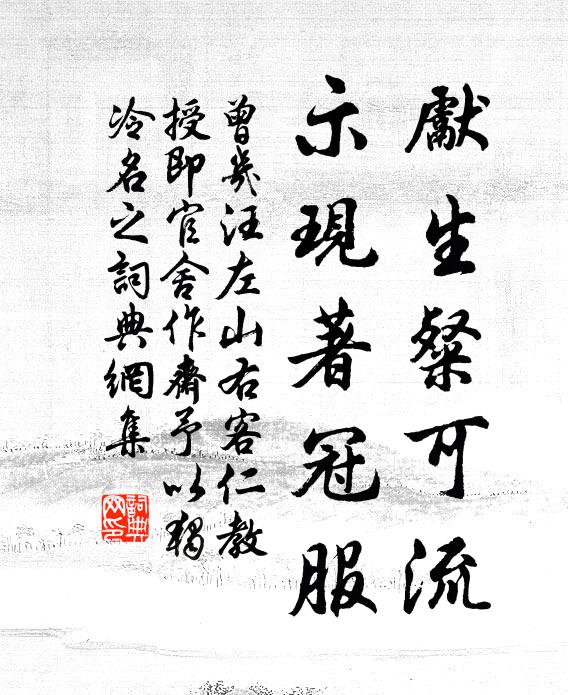 獻生粲可流
示現著冠服
曾幾汪左山右客仁教
授即官舍作齋予以獨
冷名之詞典網集
詞典網印